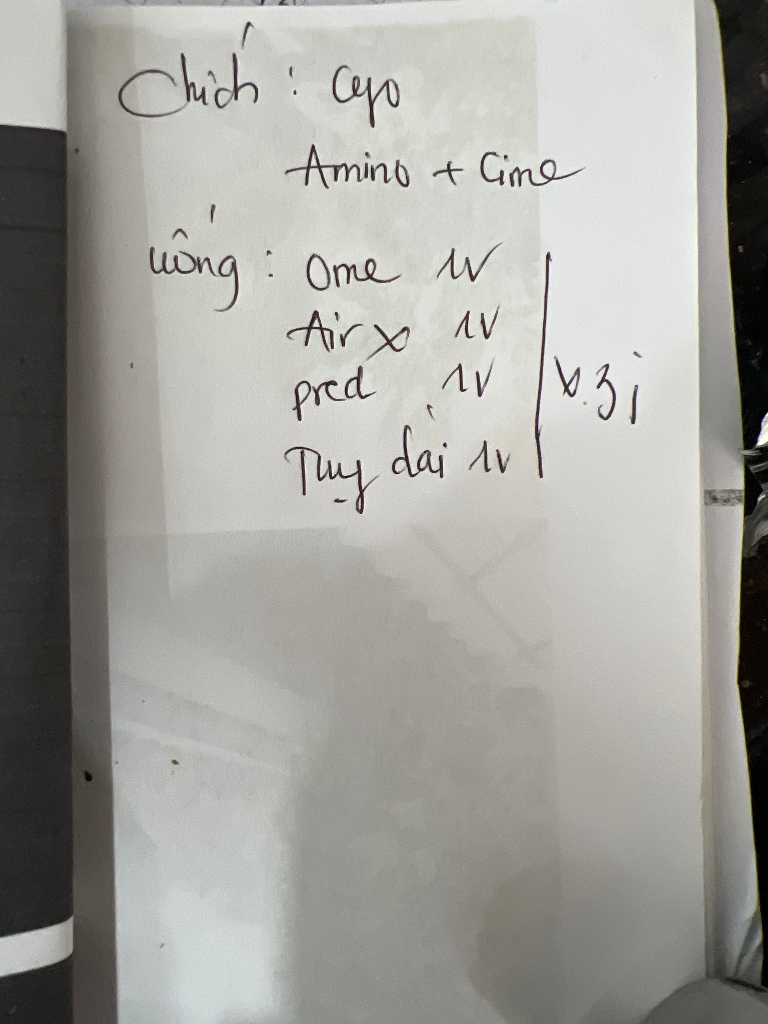 Chích : Cefo
Amino + Cime
Uống : Ome 1V
Air x 1V
pred 1V
Tuỵ dài 1v
x 3j